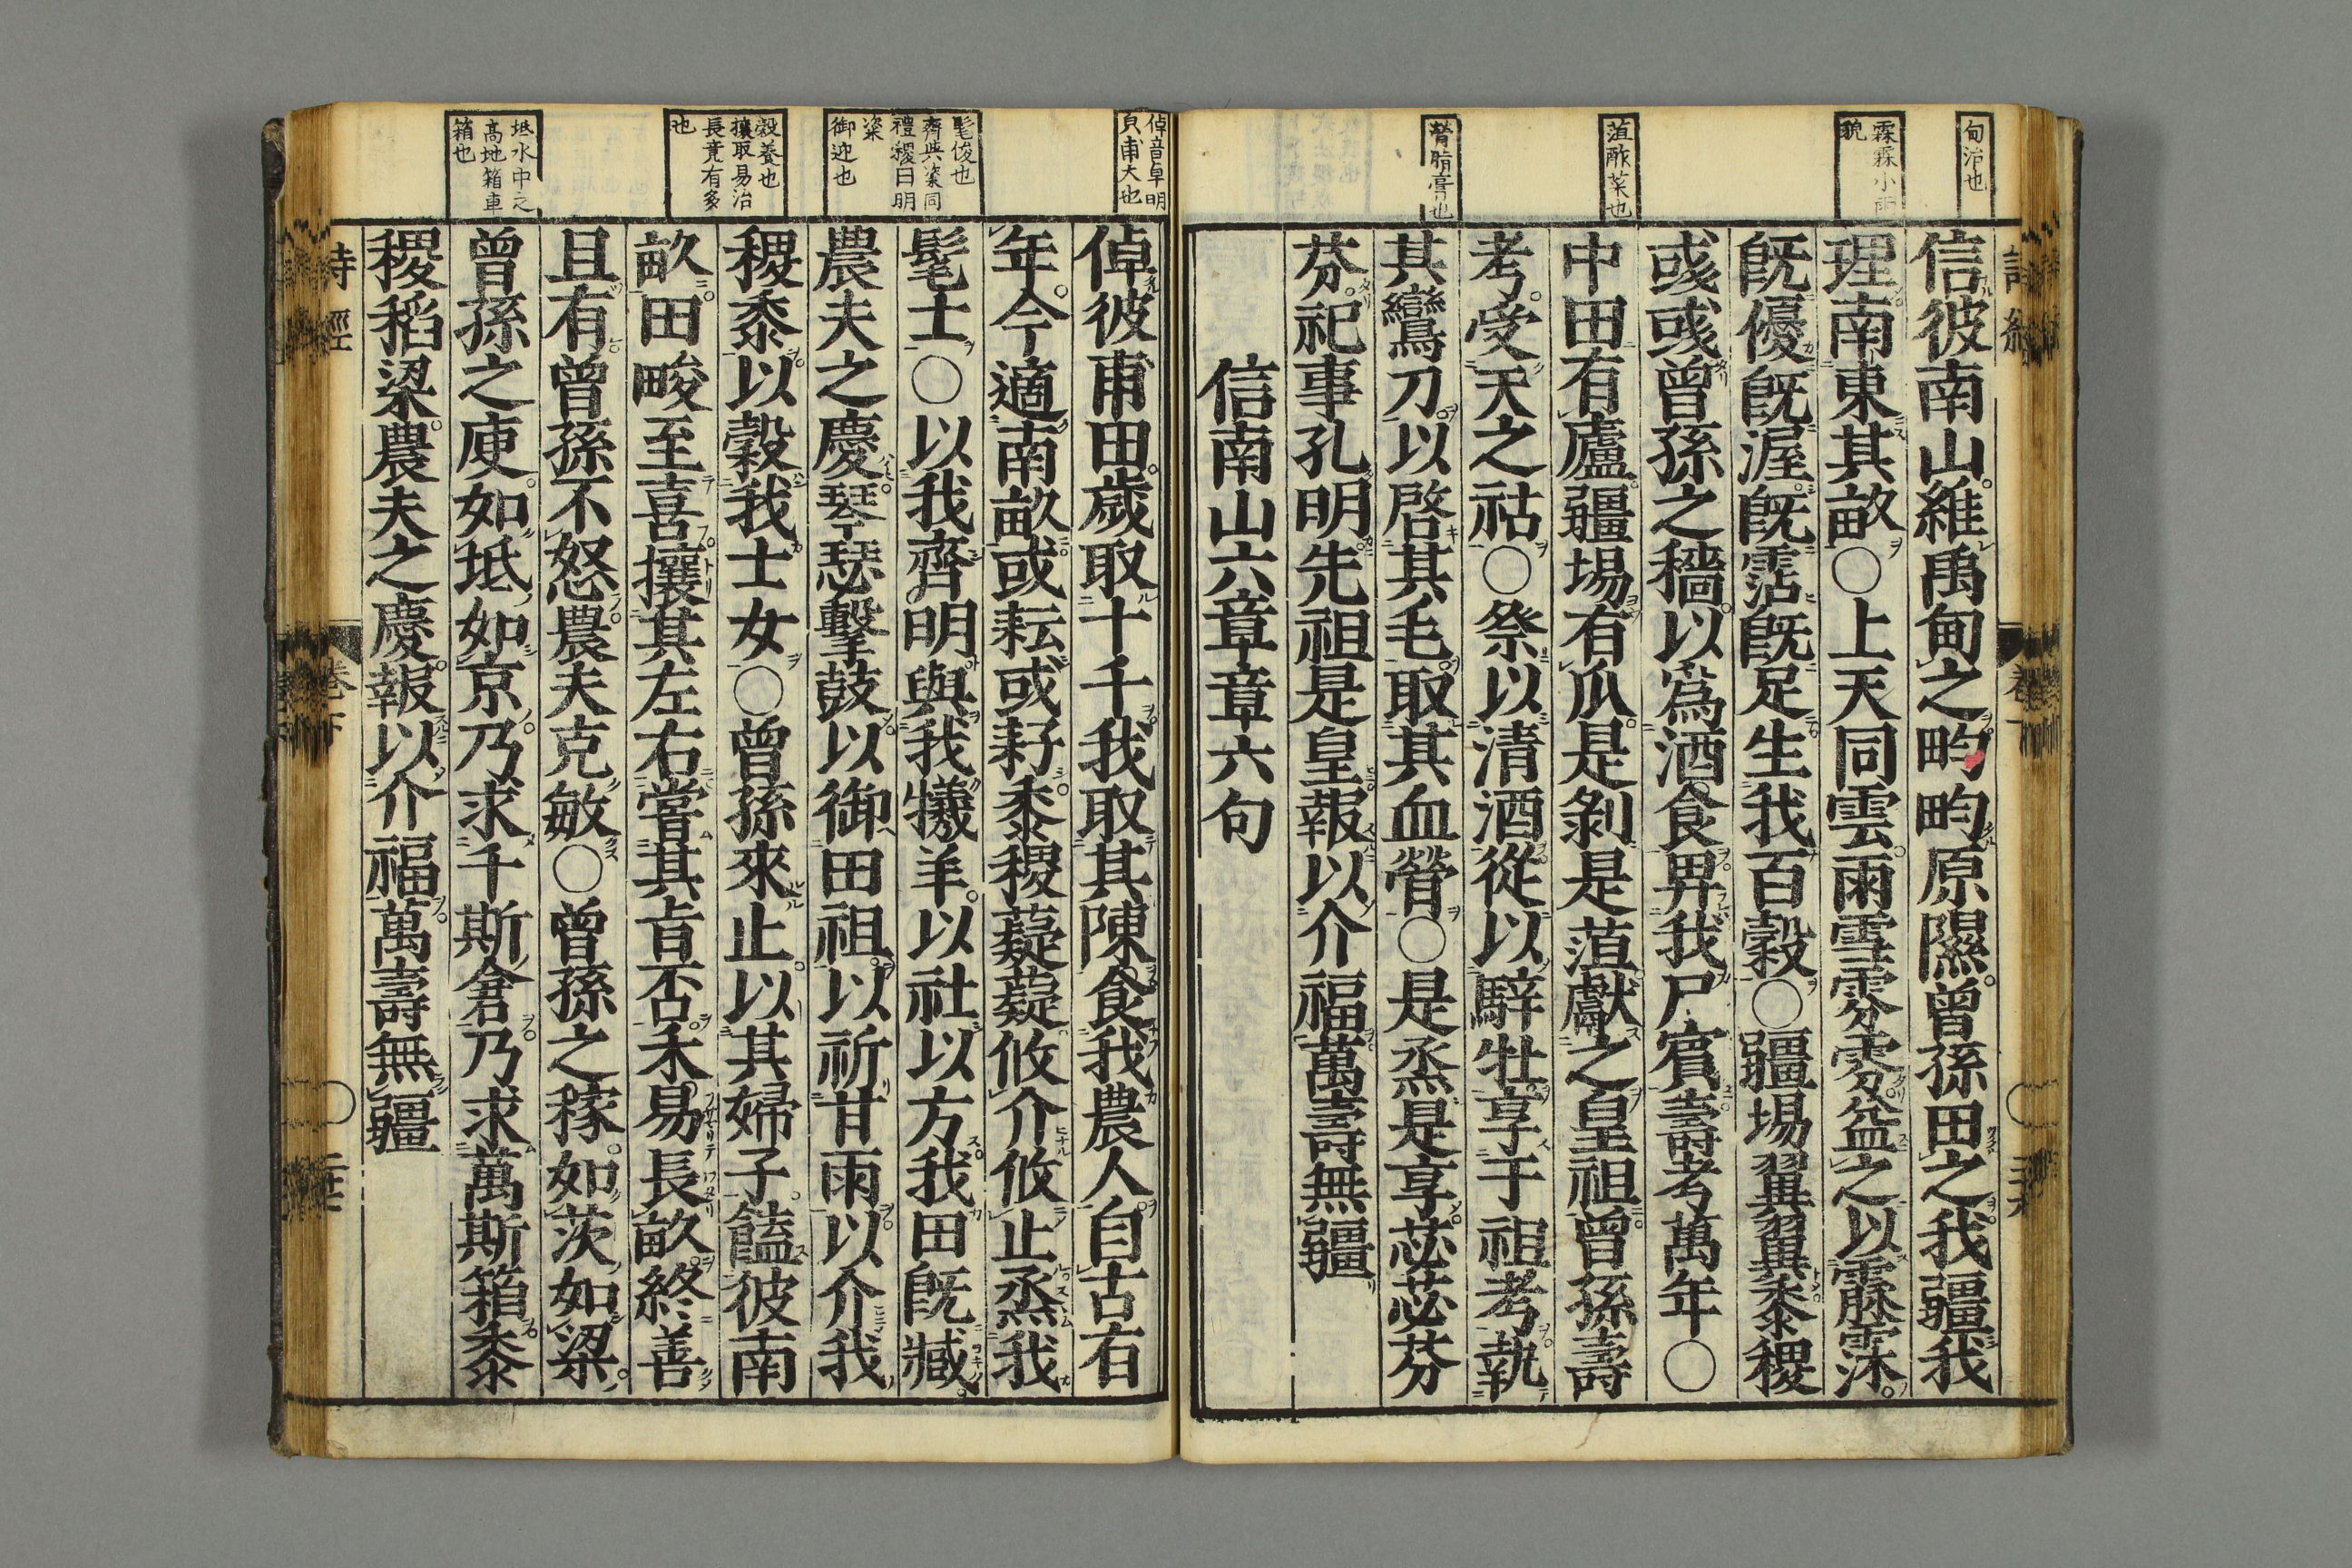 甸治也
霡霂小雨
貌
菹酢菜也
膋脂膏也
信彼南山維禹甸之畇畇原隰曾孫田之我疆我
理南東其畝○上天同雲雨雪雰雰益之以霡霂
既優既渥既霑既足生我百穀○疆埸翼翼黍稷
彧彧曾孫之穡以爲酒食畀我尸賓壽考萬年○
中田有廬疆埸有瓜是剝是菹獻之皇祖曾孫壽
考受天之祜○祭以清酒從以騂牡享于祖考執
其鸞刀以啓其毛取其血膋○是烝是享苾苾芬
芬祀事孔明先祖是皇報以介福萬壽無疆
信南山六章章六句
倬音卓明
皃甫大也
髦俊也
齊與粢同
禮稷曰明
粢
御迎也
穀養也
攘取易治
長竟有多
也
坻水中之
高地箱車
箱也
倬彼甫田歲取十千我取其陳食我農人自古有
年今適南畝或耘或耔黍稷薿薿攸介攸止烝我
髦士○以我齊明與我犧羊以社以方我田既臧
農夫之慶琴瑟擊鼓以御田祖以祈甘雨以介我
稷黍以穀我士女○曾孫來止以其婦子饁彼南
畝田畯至喜攘其左右嘗其旨否禾易長畝終善
且有曾孫不怒農夫克敏○曾孫之稼如茨如梁
曾孫之庾如坻如京乃求千斯倉乃求萬斯箱黍
稷稻梁農夫之慶報以介福萬壽無疆
詩經